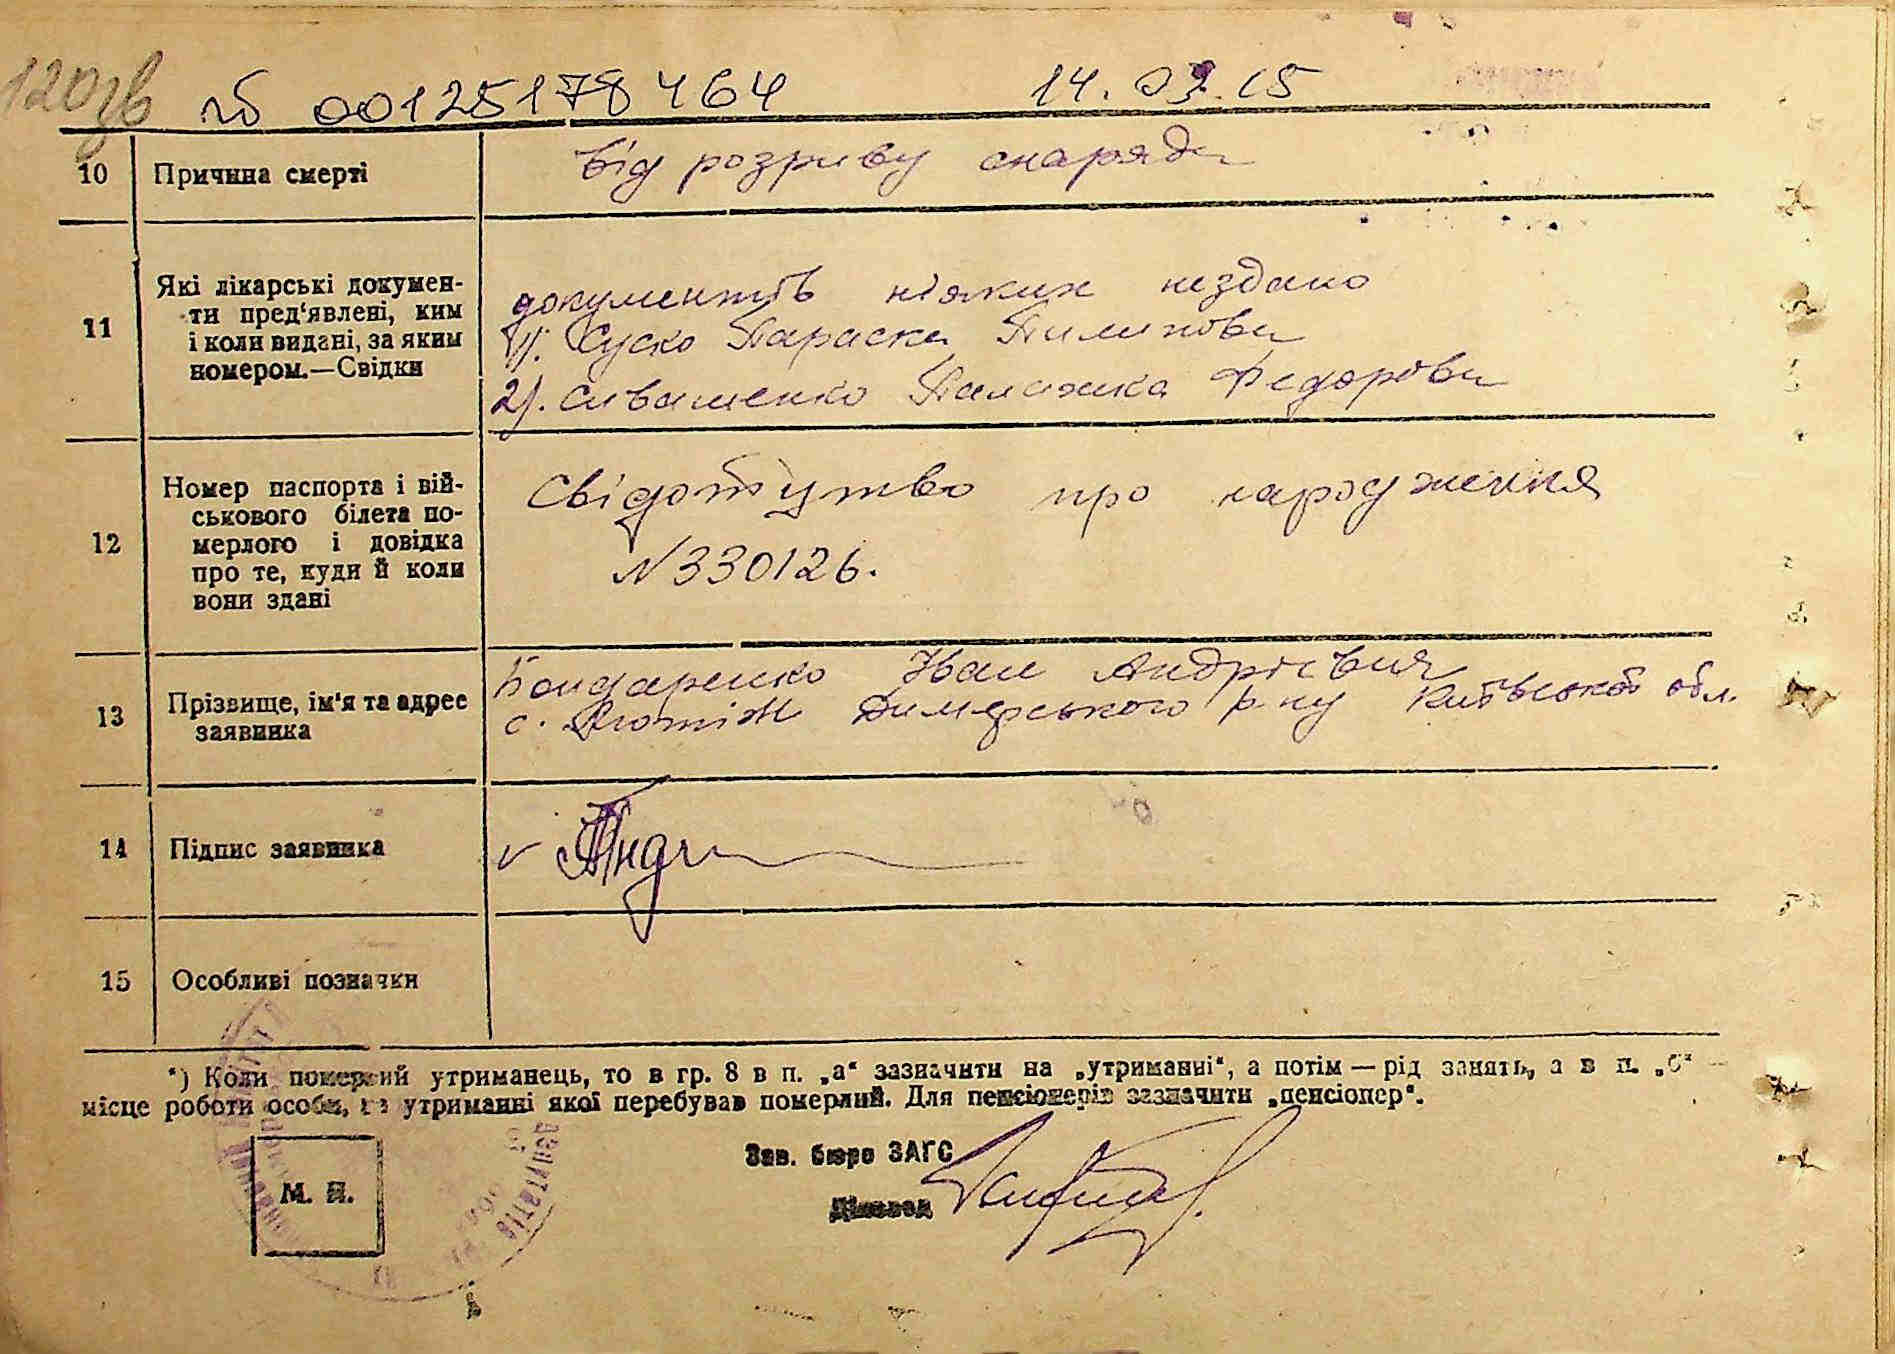 120зв
№ 00125178464 14.03.15
10 Причина смерті
від розриву снаряда
11 Які лікарські докумен-
ти пред'явлені, ким
і коли видані, за яким
номером.—Свідки
документів ніяких нездано
1). Суско Параска Пилиповн
2). Сиваженко Палажка Федоровн
12 Номер паспорта і вій-
ськового білета по-
мерлого і довідка
про те, куди й коли
вони здані
Свідотутво про народження
N 330126.
13 Прізвище, ім'я та адрес
заявника
Бондаренко Іван Андрієвич
с. Лютіж Димерського р-ну Київської обл.
14 Підпис заявника
15 Особливі позначки
*) Коли померлий утриманець, то в гр. 8 в п. „а“ зазначити на „утриманні“, а потім — рід занять, а в п. „б“ —
місце роботи особи, на утриманні якої перебував померлий. Для пенсіонерів зазначити „пенсіонер“.
Зав. бюро ЗАГС
М. П.
Діловод
депутатів